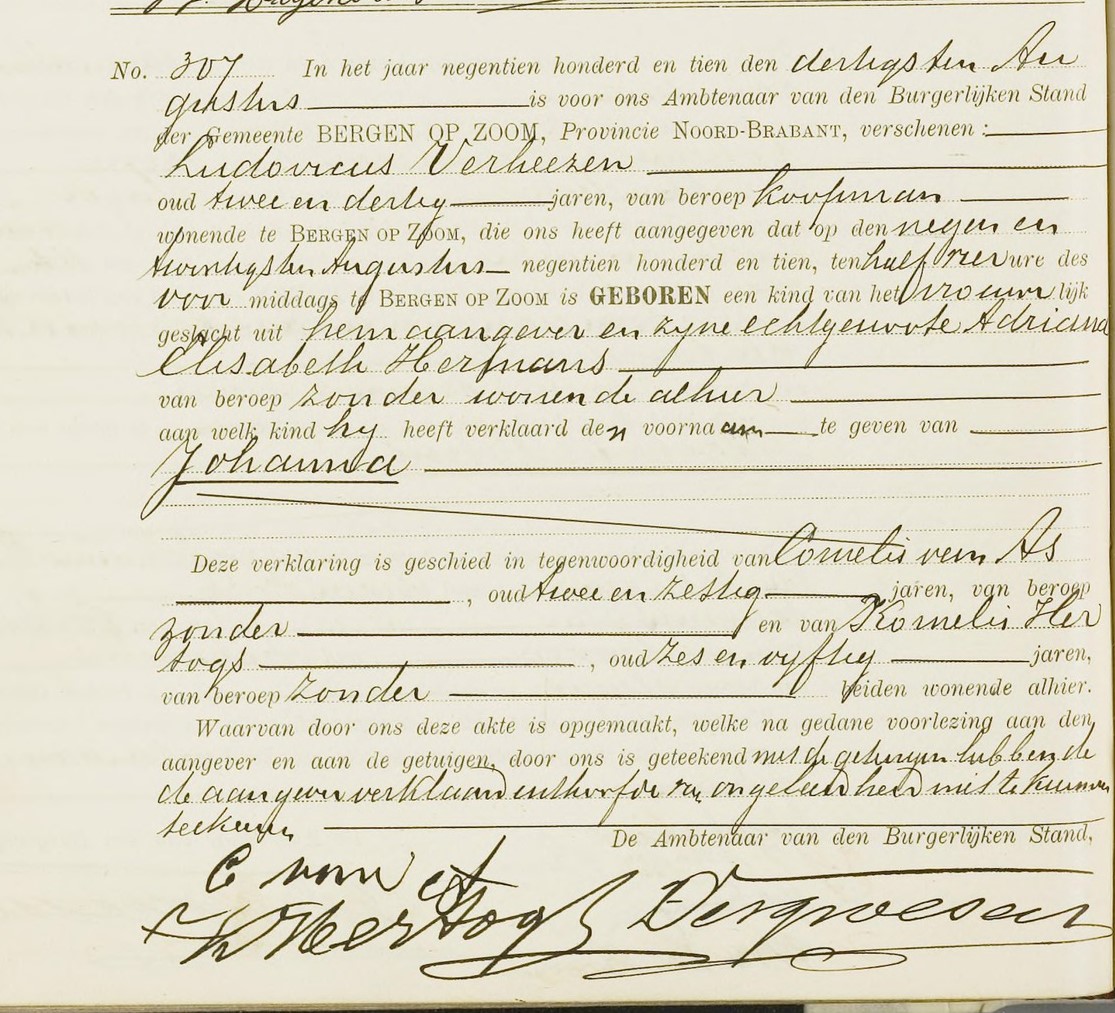 No. 307 In het jaar negentien honderd en tien den dertigsten Au
gustus is voor ons Ambtenaar van den Burgerlijken Stand
der Gemeente BERGEN OP ZOOM, Provincie NOORD-BRABANT, verschenen :
Ludovicus Verheezen
oud twee en dertig jaren, van beroep koopman
wonende te BERGEN OP ZOOM, die ons heeft aangegeven dat op den negen en
twintigsten Augustus negentien honderd en tien, ten half vier ure des
voor middags te BERGEN OP ZOOM is GEBOREN een kind van het vrouwe lijk
geslacht uit hem aangever en zyne echtgenoote Adriana
Elisabeth Hermans
van beroep zonder wonende alhier
aan welk kind hy heeft verklaard den voornaam te geven van
Johanna
Deze verklaring is geschied in tegenwoordigheid van Cornelis van As
, oud twee en zestig jaren, van beroep
zonder en van Kornelis Her
togs , oud zes en vyftig jaren,
van beroep zonder beiden wonende alhier.
Waarvan door ons deze akte is opgemaakt, welke na gedane voorlezing aan den
aangever en aan de getuigen, door ons is geteekend met de getuigen hebbende
de aangever verklaard uithoofde van ongeleerdheid niet te kunnen
teekenen
De Ambtenaar van den Burgerlijken Stand,
C van As
Hertogs